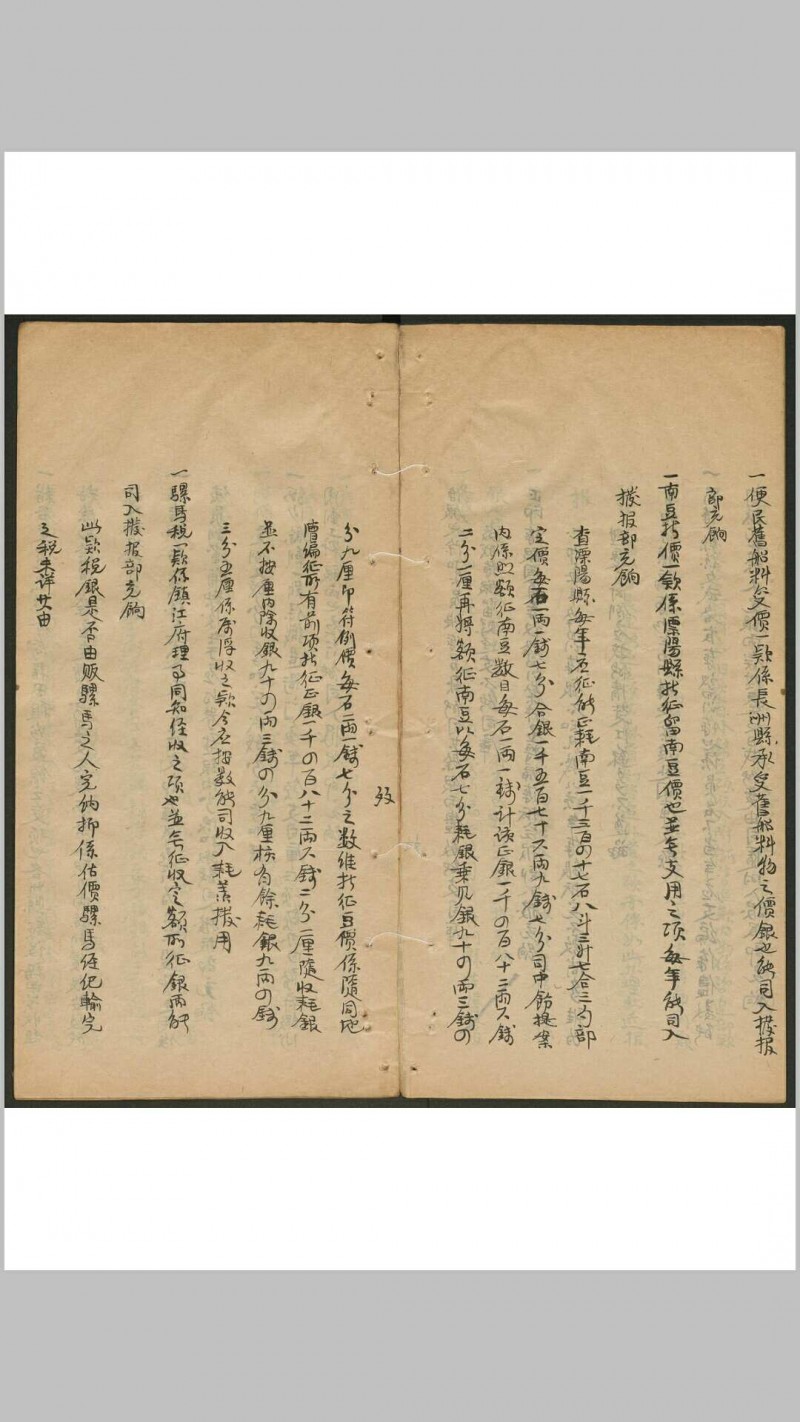 一便民舊船料變價一款係長洲縣承變舊船料物之價銀也解司入撥报
部充餉
一南豆折價一款係溧陽縣折征留南豆價也並無支用之項每年解司入
撥报部充餉
查溧陽縣每年应征解正耗南豆一千三百〇十七石八斗三升七合三勺部
定價每石一两一錢七分合銀一千五百七十六两九錢七分司中飭提案
内係照額征南豆数目每石一两一錢計该正銀一千〇百八十二两六錢
二分二厘再将額征南豆以每石七分耗銀乘見銀九十〇两三錢〇
分九厘即符例價每石一两一錢七分之数維折征豆價係隨同地
漕编征所有前项折征正銀一千〇百八十二两六錢二分二厘隨收耗銀
並不按厘内除收銀九十〇两三錢〇分九厘核有餘耗銀九两〇錢
三分五厘係属浮收之款今应按数解司收入耗羡撥用
一騾馬税一款係鎮江府理事同知经收之项也並無征收定額所征銀两解
司入撥报部充餉
此款税銀是否由贩騾馬之人完纳抑係估價騾馬经纪輸完
之税未详其由